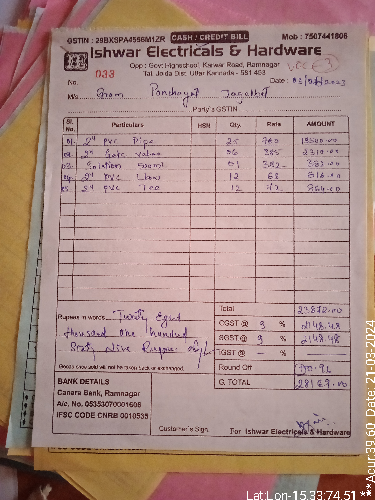 GSTIN : 29BXSPA4566M1ZR CASH / CREDIT BILL Mob : 7507441806
Ishwar Electricals & Hardware
Opp : Govt Highschool, Karwar Road, Ramnagar
Tal. Joida Dist. Uttar Kannada - 581 453
No. 033 Date :
M/s Gram Panchayat
Party's GSTIN
Sl. No. Particulars HSN Qty. Rate AMOUNT
01- 2" PVC Pipe 25 780
2" Valve 06 385 2310.00
03- Solution 500ml 01 382 382.00
2" PVC Elbow 12 68 816.00
2" PVC Tee 12 72 864.00
Total 23872.00
Rupees in words Twenty Eight
thousand one hundred
Sixty Rupees only
CGST @ 9 % 2148.48
SGST @ 9 % 2148.48
IGST @ - %
Round Off
G. TOTAL 28169.00
Goods once sold will not be taken back or exchanged.
BANK DETAILS
Canara Bank, Ramnagar
A/c. No. 05353070001606
IFSC CODE CNRB 0010535
Customer's Sign. For Ishwar Electricals & Hardware
Lat:Lon-15.33:74.51
***Acur:39.60 Date: 21-03-2024